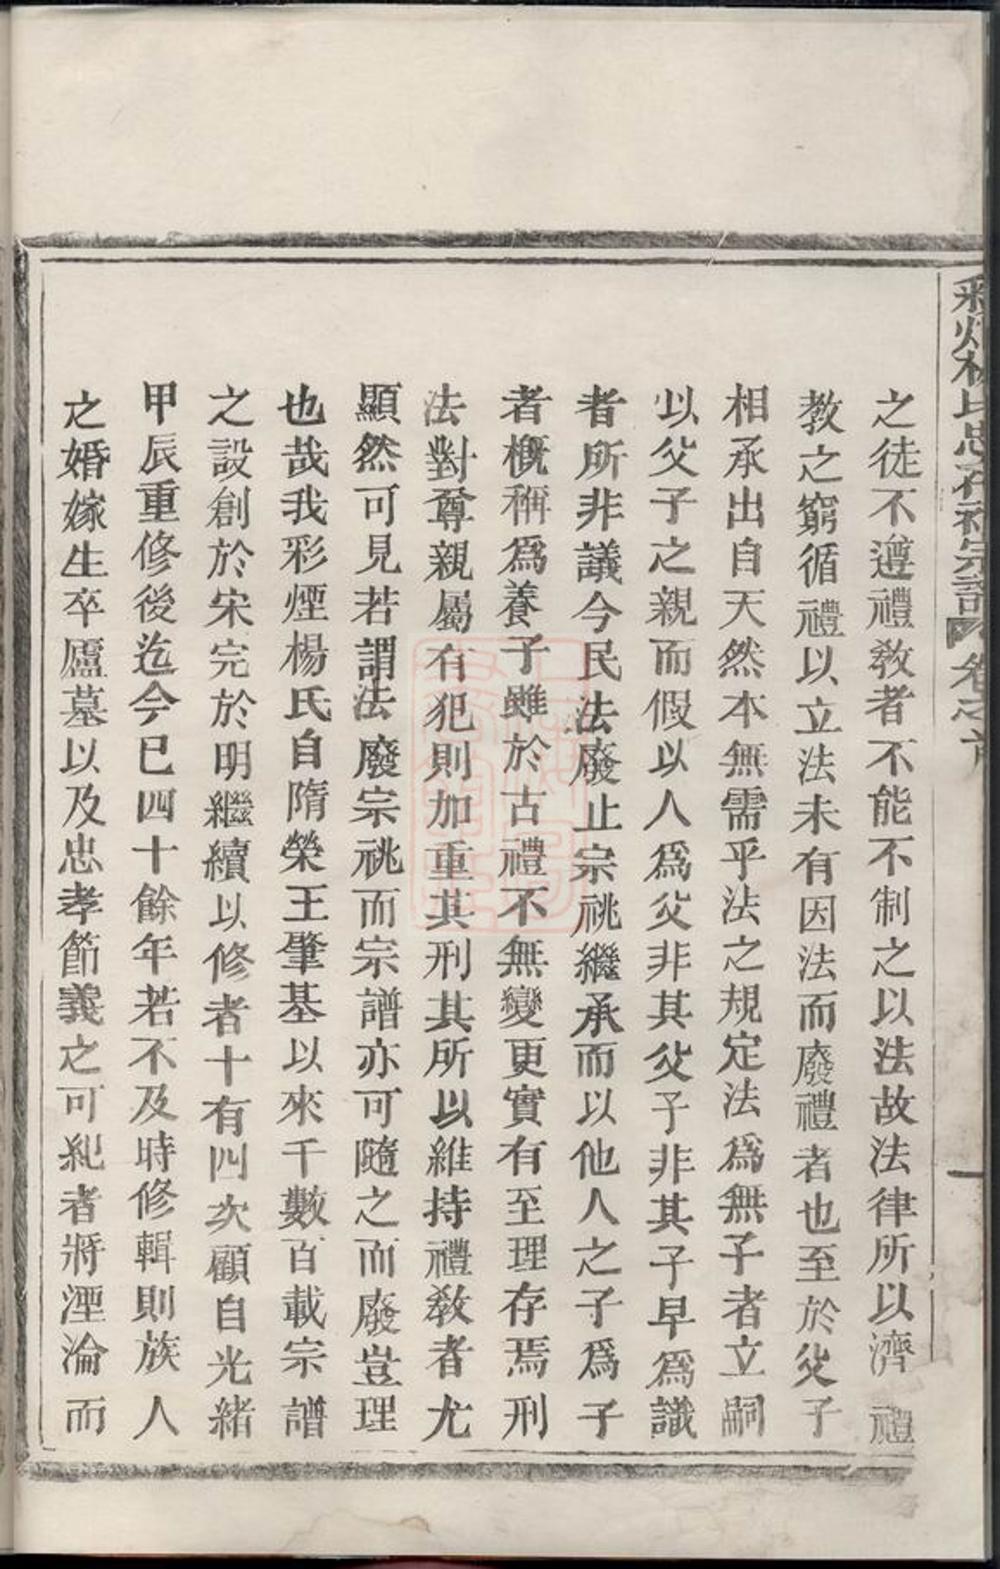 彩烟楊氏忠孝祠宗譜 卷之首 一
之徒不遵禮教者不能不制之以法故法律所以濟禮
教之窮循禮以立法未有因法而廢禮者也至於父子
相承出自天然本無需乎法之規定法爲無子者立嗣
以父子之親而假以人爲父非其父子非其子早爲識
者所非議今民法廢止宗祧繼承而以他人之子爲子
者槪稱爲養子雖於古禮不無變更實有至理存焉刑
法對尊親屬有犯則加重其刑其所以維持禮教者尤
顯然可見若謂法廢宗祧而宗譜亦可隨之而廢豈理
也哉我彩煙楊氏自隋榮王肇基以來千數百載宗譜
之設創於宋完於明繼續以修者十有四次顧自光緒
甲辰重修後迄今已四十餘年若不及時修輯則族人
之婚嫁生卒廬墓以及忠孝節義之可紀者將湮淪而